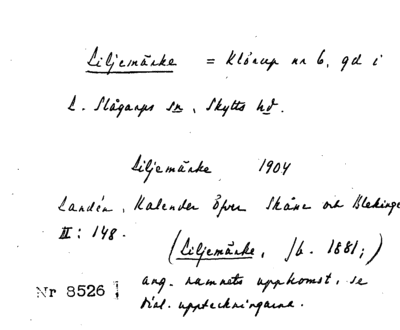 Liljemärke = Klörup nr 6, gd i
L. Slågarps sn, Skytts hd.
Liljemärke 1904
Landén, Kalender öfver Skåne och Blekinge
III: 148.
(Liljemärke, fb. 1881;)
Nr 8526 ang. namnets uppkomst, se
dial. uppteckningarna.